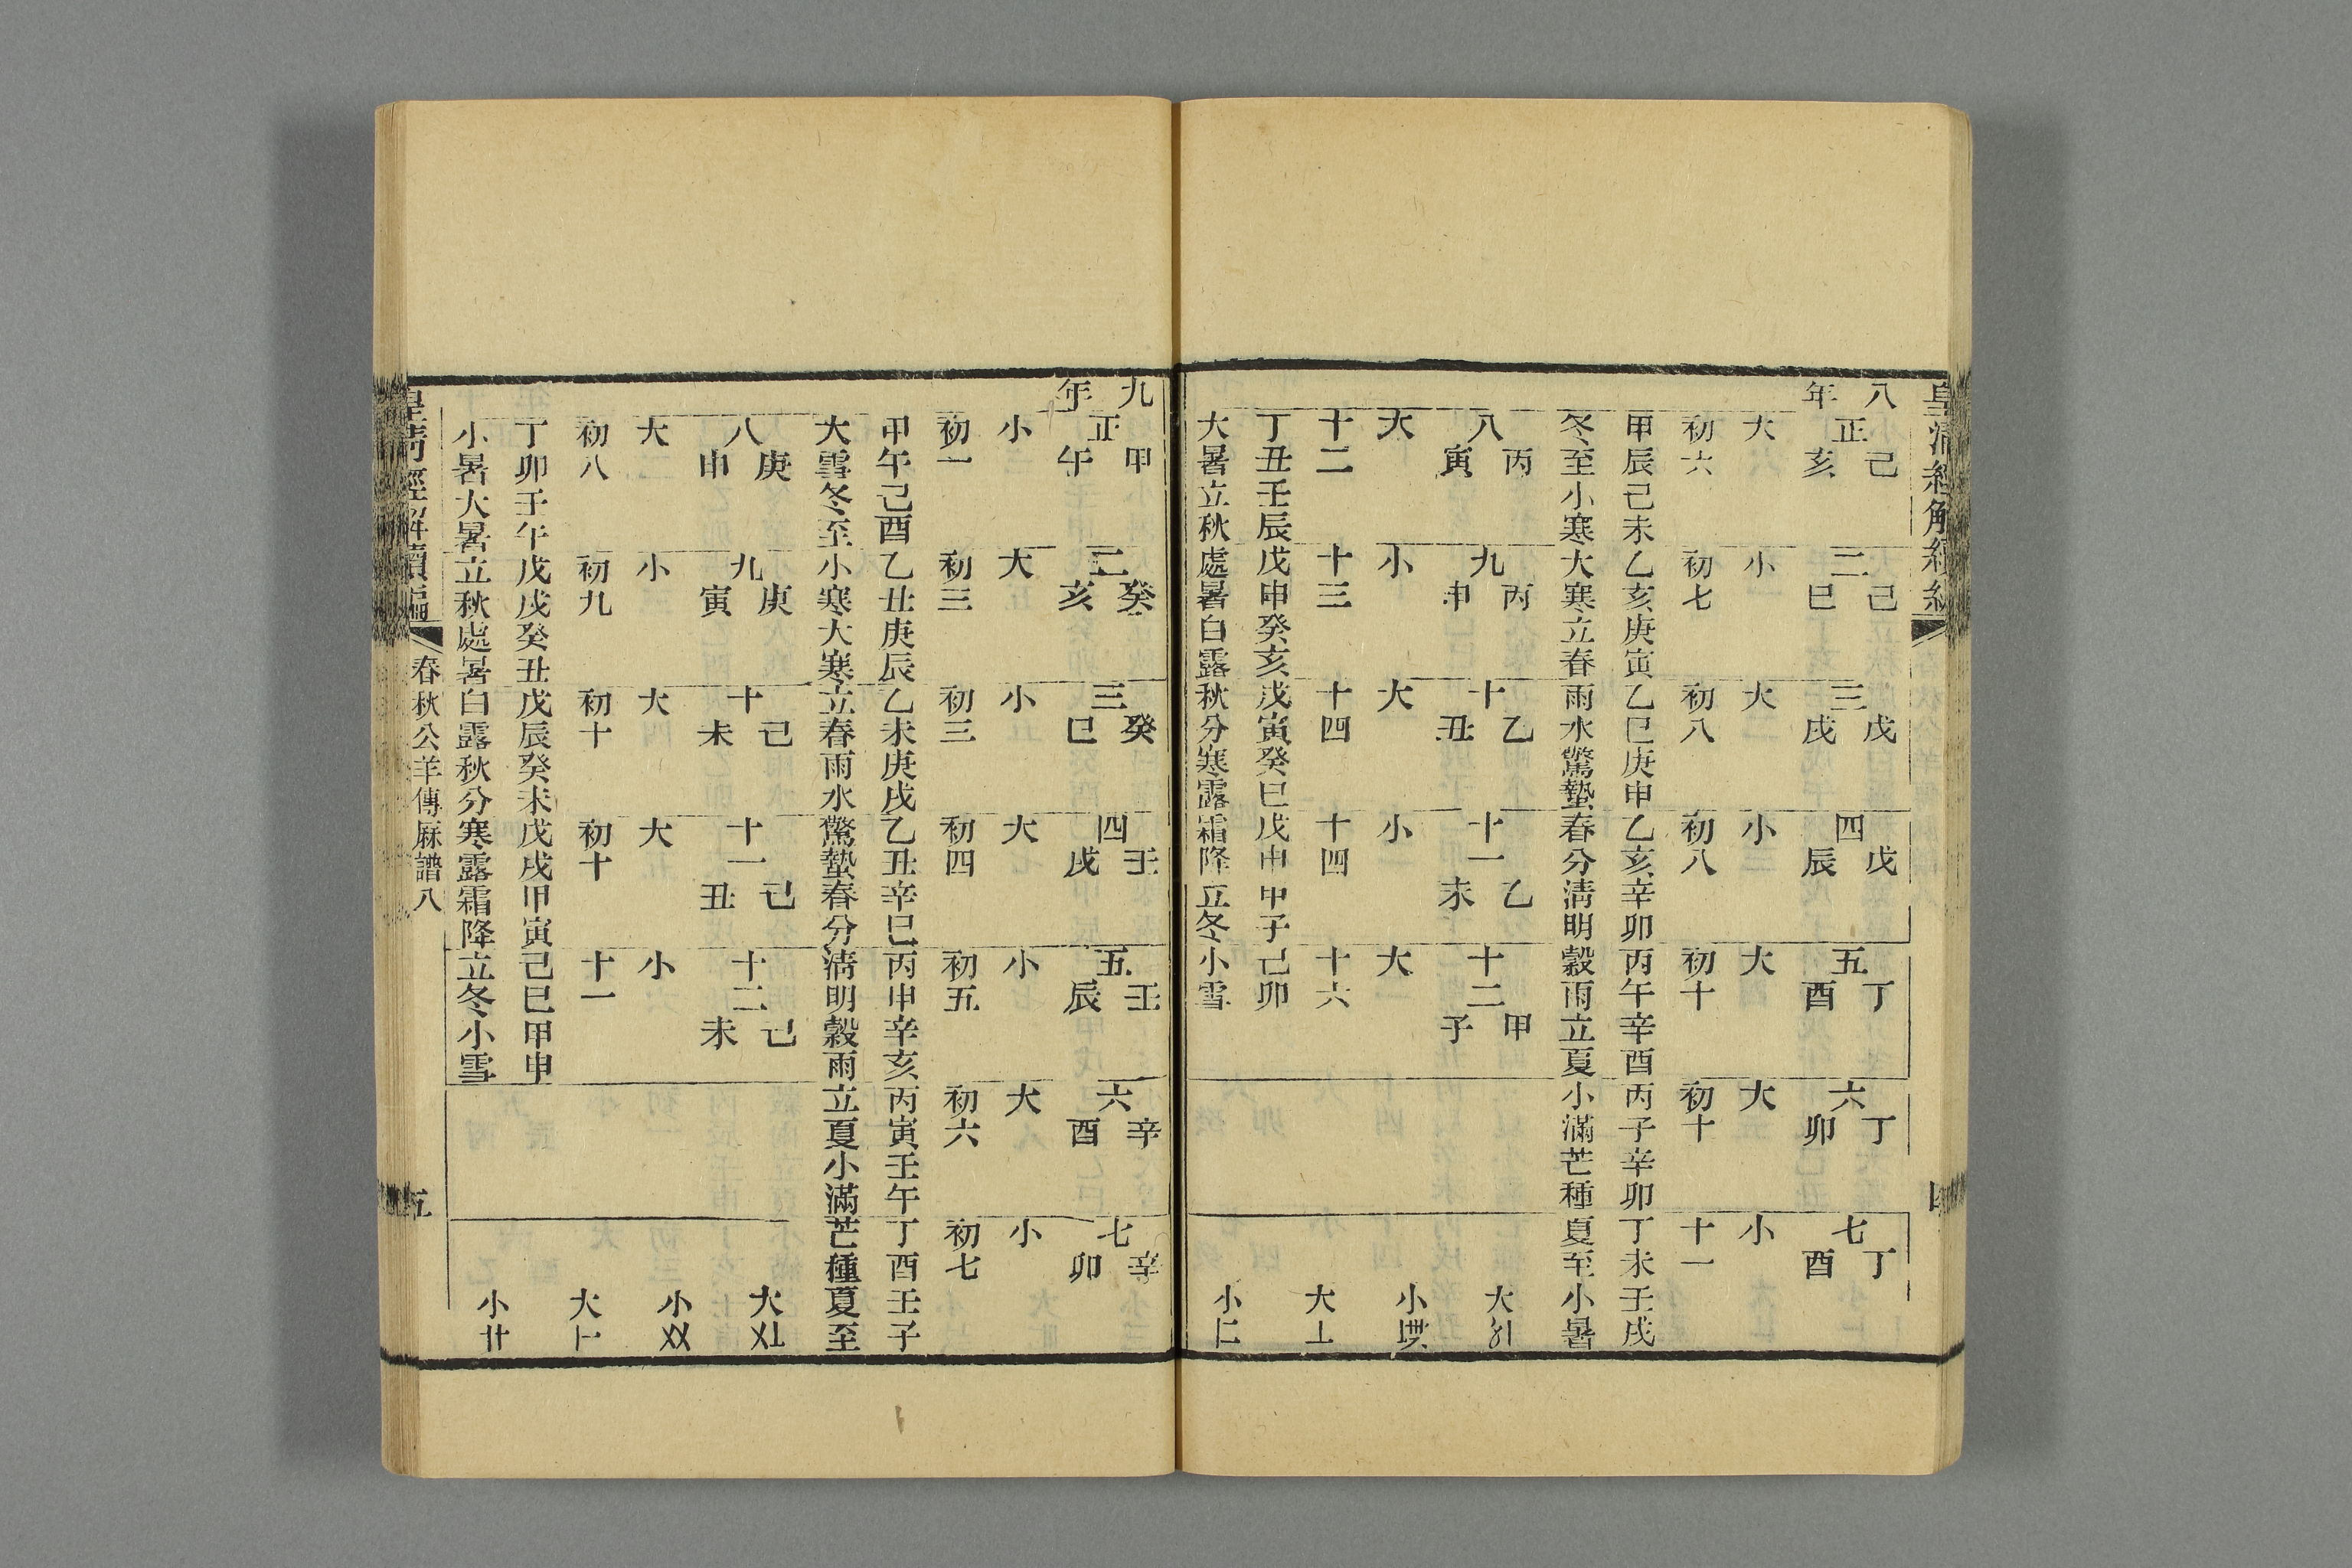 皇清經解續編
八年
正己亥 二己巳 三戊戌 四戊辰 五丁酉 六丁卯 七丁酉
大 小 大 小 大 大 小
初六 初七 初八 初八 初十 初十 十一
甲辰己未乙亥庚寅乙巳庚申乙亥辛卯丙午辛酉丙子辛卯丁未壬戌
冬至小寒大寒立春雨水驚蟄春分清明穀雨立夏小滿芒種夏至小暑
八丙寅 九丙申 十乙丑 十一乙未 十二甲子
大 小 大 小 大
十二 十三 十四 十四 十六
丁丑壬辰戊申癸亥戊寅癸巳戊申甲子己卯
大暑立秋處暑白露秋分寒露霜降立冬小雪
大
小
大
小
九年
正甲午 二癸亥 三癸巳 四壬戌 五壬辰 六辛酉 七辛卯
小 大 小 大 小 大 小
初一 初三 初三 初四 初五 初六 初七
甲午己酉乙丑庚辰乙未庚戌乙丑辛巳丙申辛亥丙寅壬午丁酉壬子
大雪冬至小寒大寒立春雨水驚蟄春分清明穀雨立夏小滿芒種夏至
八庚申 九庚寅 十己未 十一己丑 十二己未
大 小 大 大 小
初八 初九 初十 初十 十一
丁卯壬午戊戌癸丑戊辰癸未戊戌甲寅己巳甲申
小暑大暑立秋處暑白露秋分寒露霜降立冬小雪
大〤〦
小〤〤
大
小卄
皇清經解續編 春秋公羊傳厤譜八 五